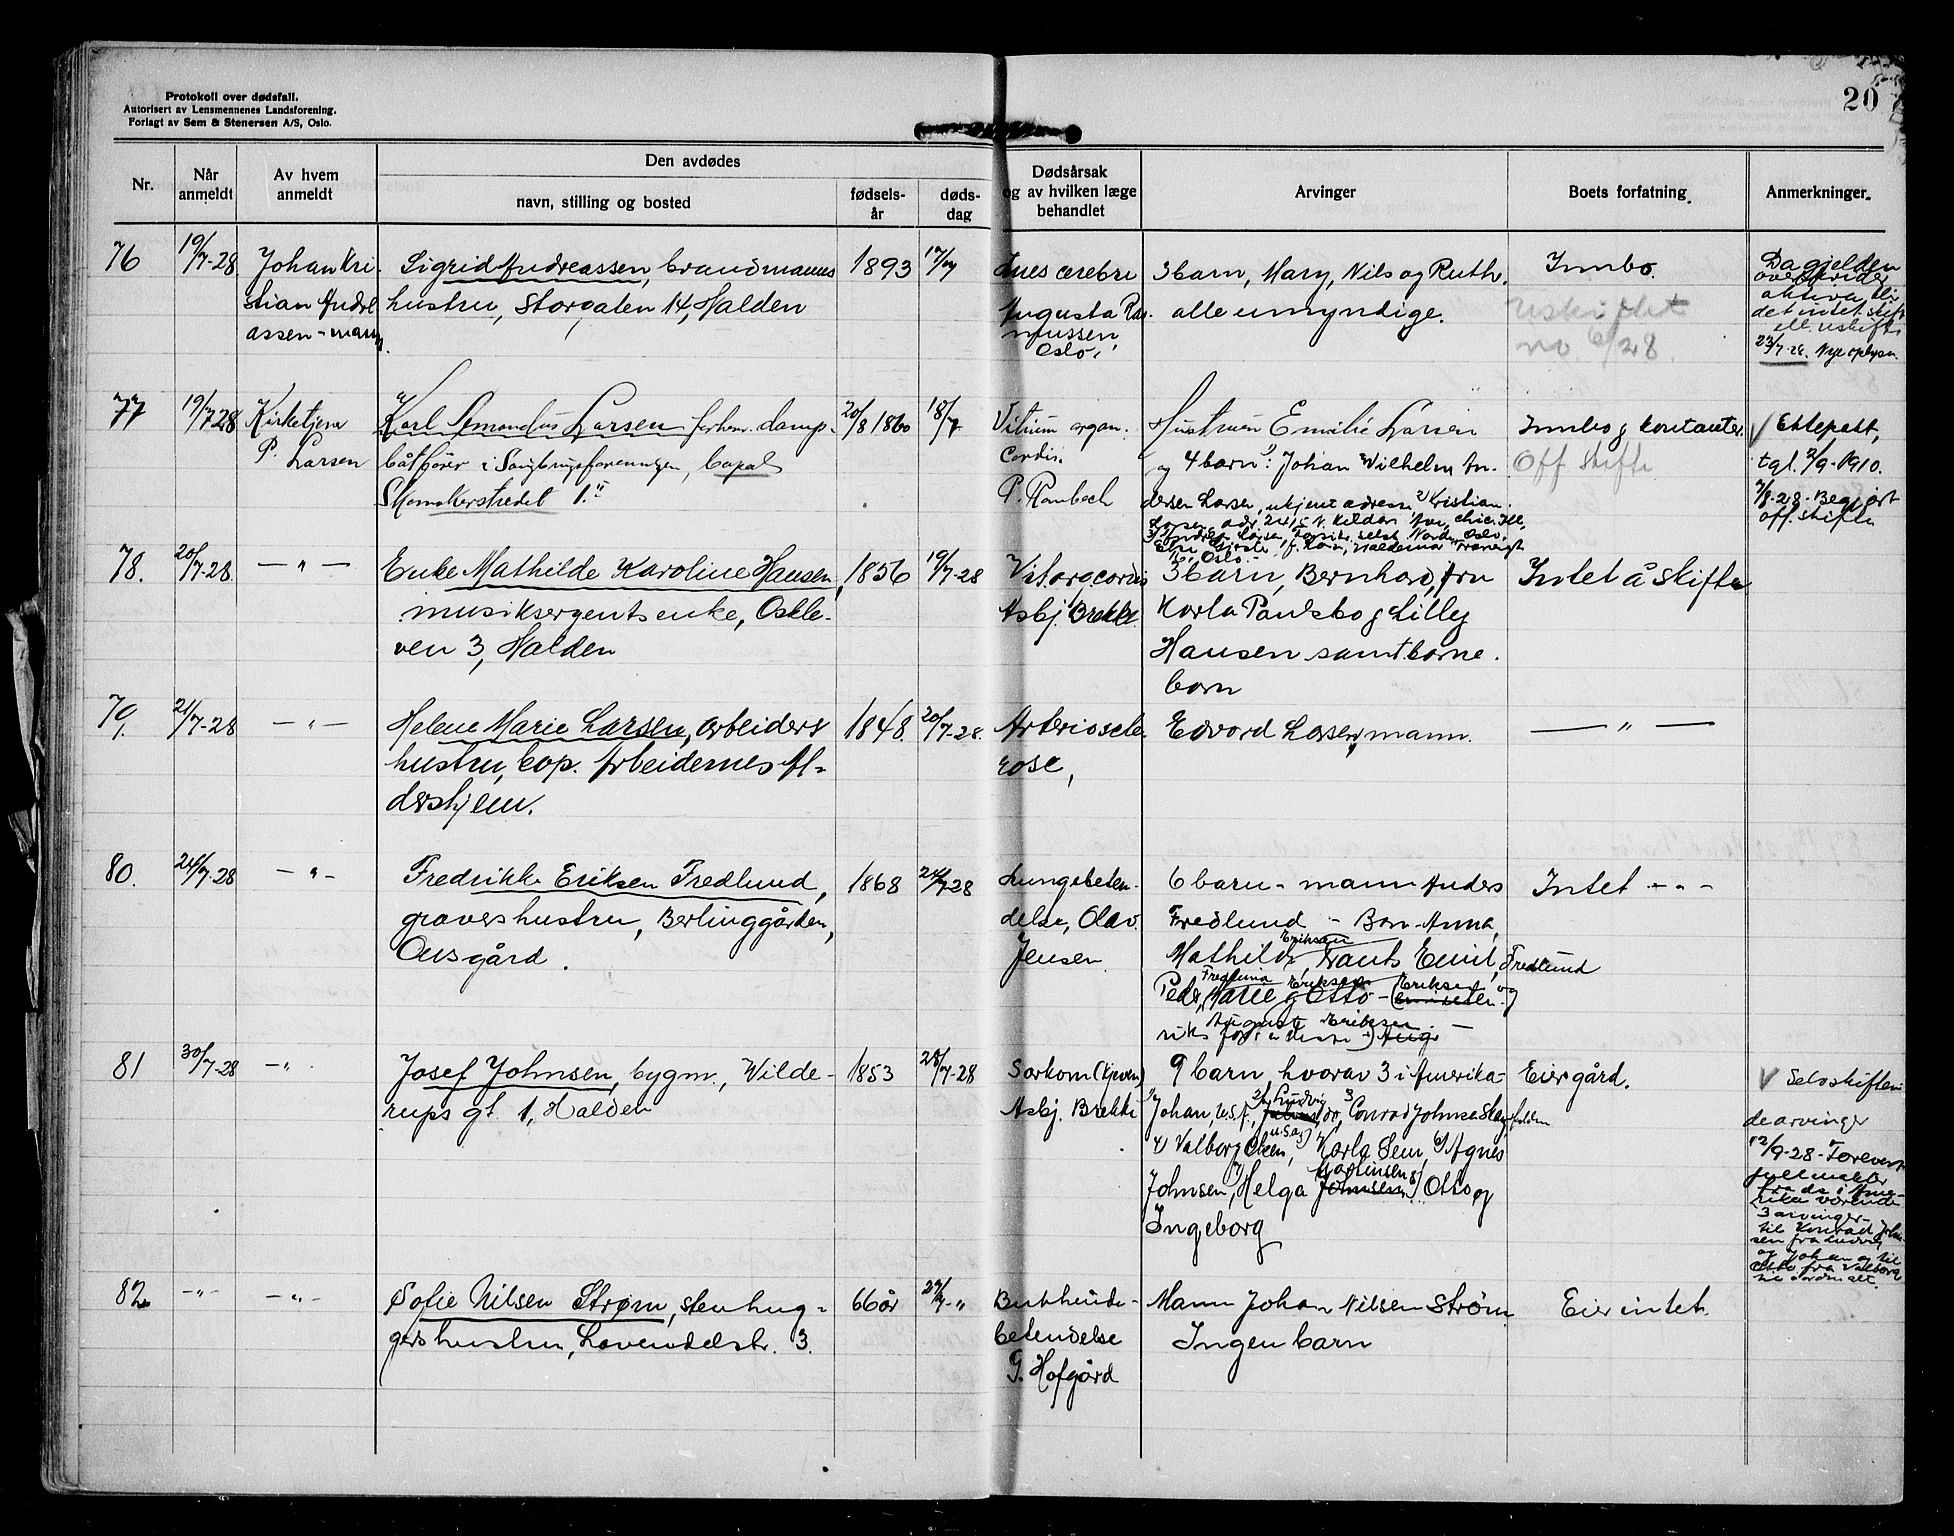 Protokoll over dødsfall.
Autorisert av Lensmennenes Landsforening.
Forlagt av Sem & Stenersen A/S, Oslo.
20
Nr.
Når anmeldt
Av hvem anmeldt
Den avdødes
navn, stilling og bosted
fødselsår
dødsdag
Dødsårsak og av hvilken læge behandlet
Arvinger
Boets forfatning
Anmerkninger.
76
19/7-28.
Johan Kri-
stian Andre-
assen - mann.
Sigrid Andreassen, brandmanns
hustru, Storgaten 14, Halden
1893
17/7
Lues cerebri
Augusta Ras-
mussen
Oslo,
3 barn, Mary, Nils og Ruth.
alle umyndige.
Innbo.
Uskiftet
Da gjelden
overskrider
aktiva, blir
det intet skifte
ell. uskifte
23/7-28. Nye oplysn.
77
19/7 28
Kirketjener
P. Larsen
Karl Larsen forhenv. damp-
båtfører i
Skomakerstredet 1.
20/8 1860
18/7
Vitium organ.
Cordis.
P. Rambech
Hustruen Emilie Larsen
og 4 barn: 1) Johan Wilhelm An-
dersen Larsen, ukjent adresse 2) Kristian
Larsen, adr. 2415 N. Kildar Ave, Chic. Ill,
Oslo.
Innbo og kontanter.
Off. skifte
√ Ektepakt,
tgl. 2/9-1910.
7/8-28-Begjært
off. skifte
78.
20/7-28.
— " —
Enke Mathilde Karoline Hansen,
musiksergents enke, Oskle-
ven 3, Halden
1856
19/7-28
Vit. org. cordis
Asbj. Brekke.
3 barn, Bernhard, fru
Karla Paulsbo og Lilly
Hansen samt barne-
barn
Intet å skifte
79,
21/7-28
— " —
Helene Marie Larsen, arbeiders
hustru, cop. Arbeidernes Al-
dershjem.
1848.
20/7-28.
Arterioscle-
rose,
Edvard Larsen, mann.
— " —
80.
24/7-28
— " —
Fredrikke Eriksen Fredlund,
gravers hustru, Berlinggården,
Ousgård.
1868
24/7-28
Lungebeten-
delse, Olav
Jensen
6 barn - mann Anders
Fredlund - Barn - Anna,
Eriksen
Mathilde, Frants Emil, Fredlund
Fredlund Eriksen Eriksen og
Peder, Marie og Otto -
August Eriksen
81
30/7-28
— " —
Josef Johnsen, bygm., Wilde-
rups gt. 1, Halden
1853
28/7-28
Sarkom (kjeven)
Asbj. Brekke
9 barn, hvorav 3 i Amerika-
1) Johan, U.S.A., 2) Ludvig do, 3) Conrad Johnsen
U.S.A.)
4) Valborg Olsen, 5) Karla Sem, 6) Agnes
Johnsen, 7) Helga Martinsen 8) Otto og
Johnsen
Ingeborg
Eier gård.
√ Selvskiften-
de arvinger
12/9-28- Forevist
fullmakter
fra de i Ame-
rika værende
3 arvinger -
til Konrad John-
sen fra Ludvig
og Johan og til
Otto fra Valborg
82
— " —
— " —
Sofie Nilsen Strøm, stenhug-
gers hustru, Lavendelstr. 3.
66 år
27/7-"
Bukhinde-
betendelse
G. Hofgård
Mann Johan Nilsen Strøm
Ingen barn
Eier intet.